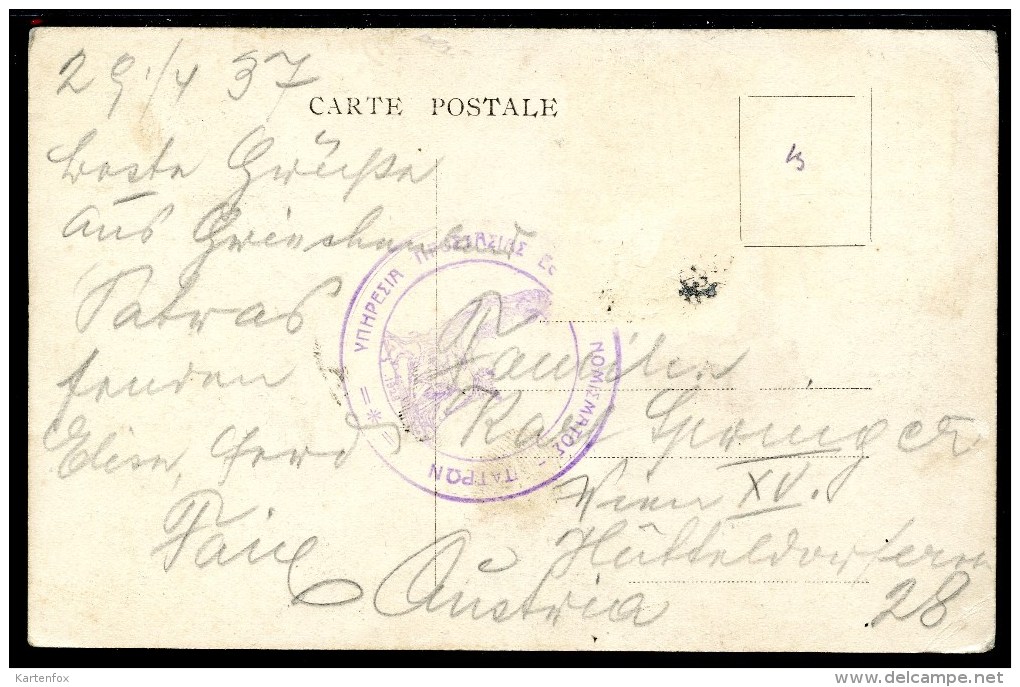 29/4 37
CARTE POSTALE
beste Grüsse
aus Griechenland
Patras
senden
Elise, Ferd
ΥΠΗΡΕΣΙΑ ΠΡΟΣΤΑΣΙΑΣ ΕΘ ΝΟΜΙΣΜΑΤΟΣ - ΠΑΤΡΩΝ
Familie
Karl Springer
Wien XV.
Hütteldorferstr
28
Austria
Kartenfox
www.delcampe.net